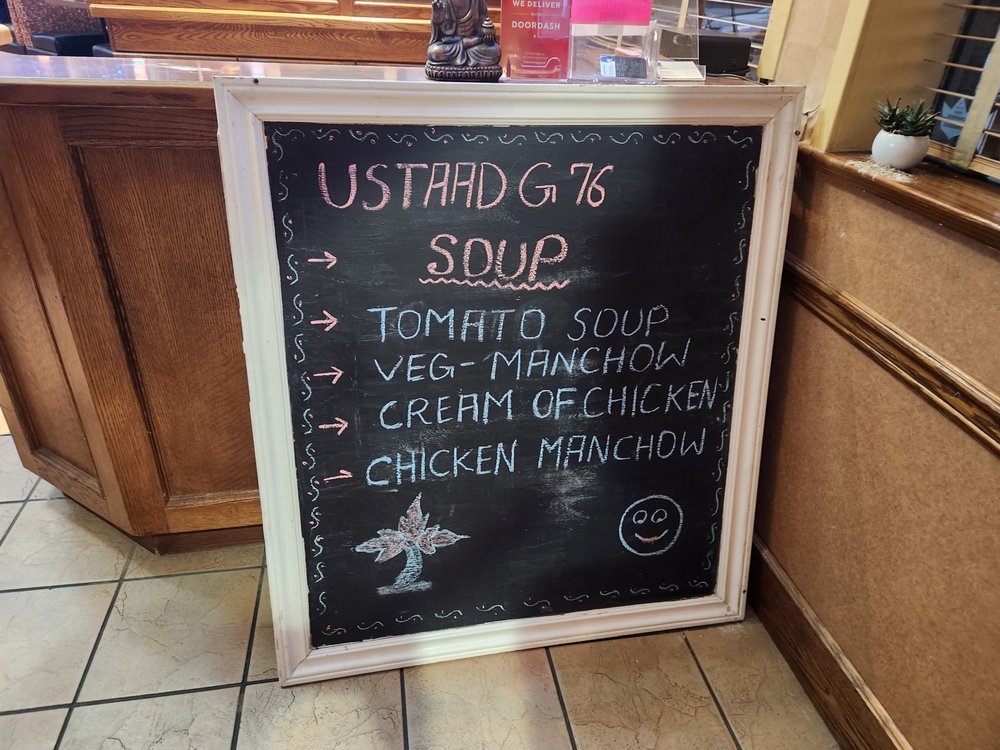 WE DELIVER
DOORDASH
USTAAD G 76
→ SOUP
→ TOMATO SOUP
→ VEG-MANCHOW
→ CREAM OF CHICKEN
→ CHICKEN MANCHOW